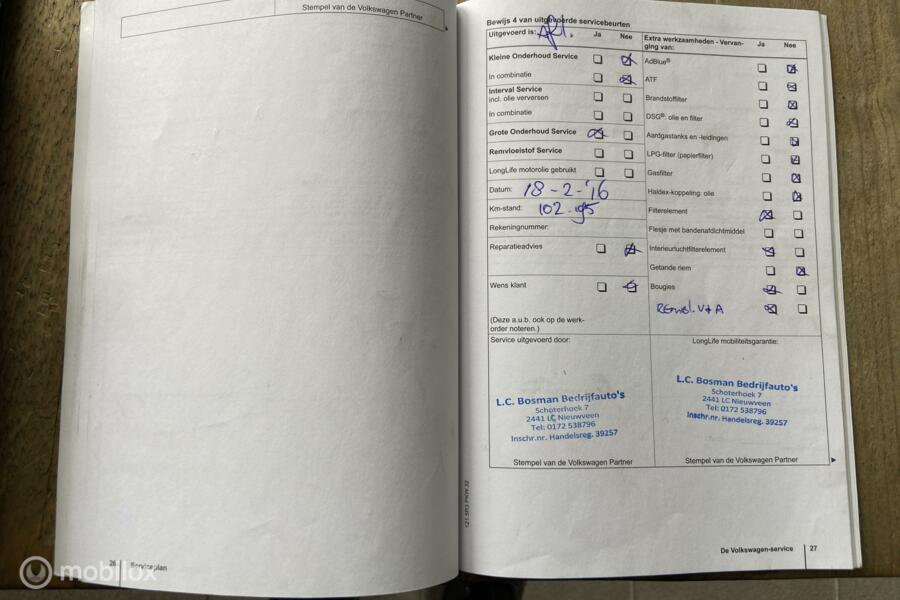 Stempel van de Volkswagen Partner
26 Serviceplan
Bewijs 4 van uitgevoerde servicebeurten
Uitgevoerd is:
Ja Nee
Kleine Onderhoud Service
In combinatie
Interval Service
incl. olie verversen
In combinatie
Grote Onderhoud Service
Remvloeistof Service
LongLife motorolie gebruikt
Datum: 18-2-'16
Km-stand: 102.195
Rekeningnummer:
Reparatieadvies
Wens klant
(Deze a.u.b. ook op de werk-
order noteren.)
Extra werkzaamheden - Vervan-
ging van:
Ja Nee
AdBlue®
ATF
Brandstoffilter
DSG®: olie en filter
Aardgastanks en -leidingen
LPG-filter (papierfilter)
Gasfilter
Haldex-koppeling: olie
Filterelement
Flesje met bandenafdichtmiddel
Interieurluchtfilterelement
Getande riem
Bougies
V+A
Service uitgevoerd door:
L.C. Bosman Bedrijfauto's
Schoterhoek 7
2441 LC Nieuwveen
Tel: 0172 538796
Inschr.nr. Handelsreg. 39257
Stempel van de Volkswagen Partner
LongLife mobiliteitsgarantie:
L.C. Bosman Bedrijfauto's
Schoterhoek 7
2441 LC Nieuwveen
Tel: 0172 538796
Inschr.nr. Handelsreg. 39257
Stempel van de Volkswagen Partner
121.5R3.PKW.32
De Volkswagen-service 27
mobilox